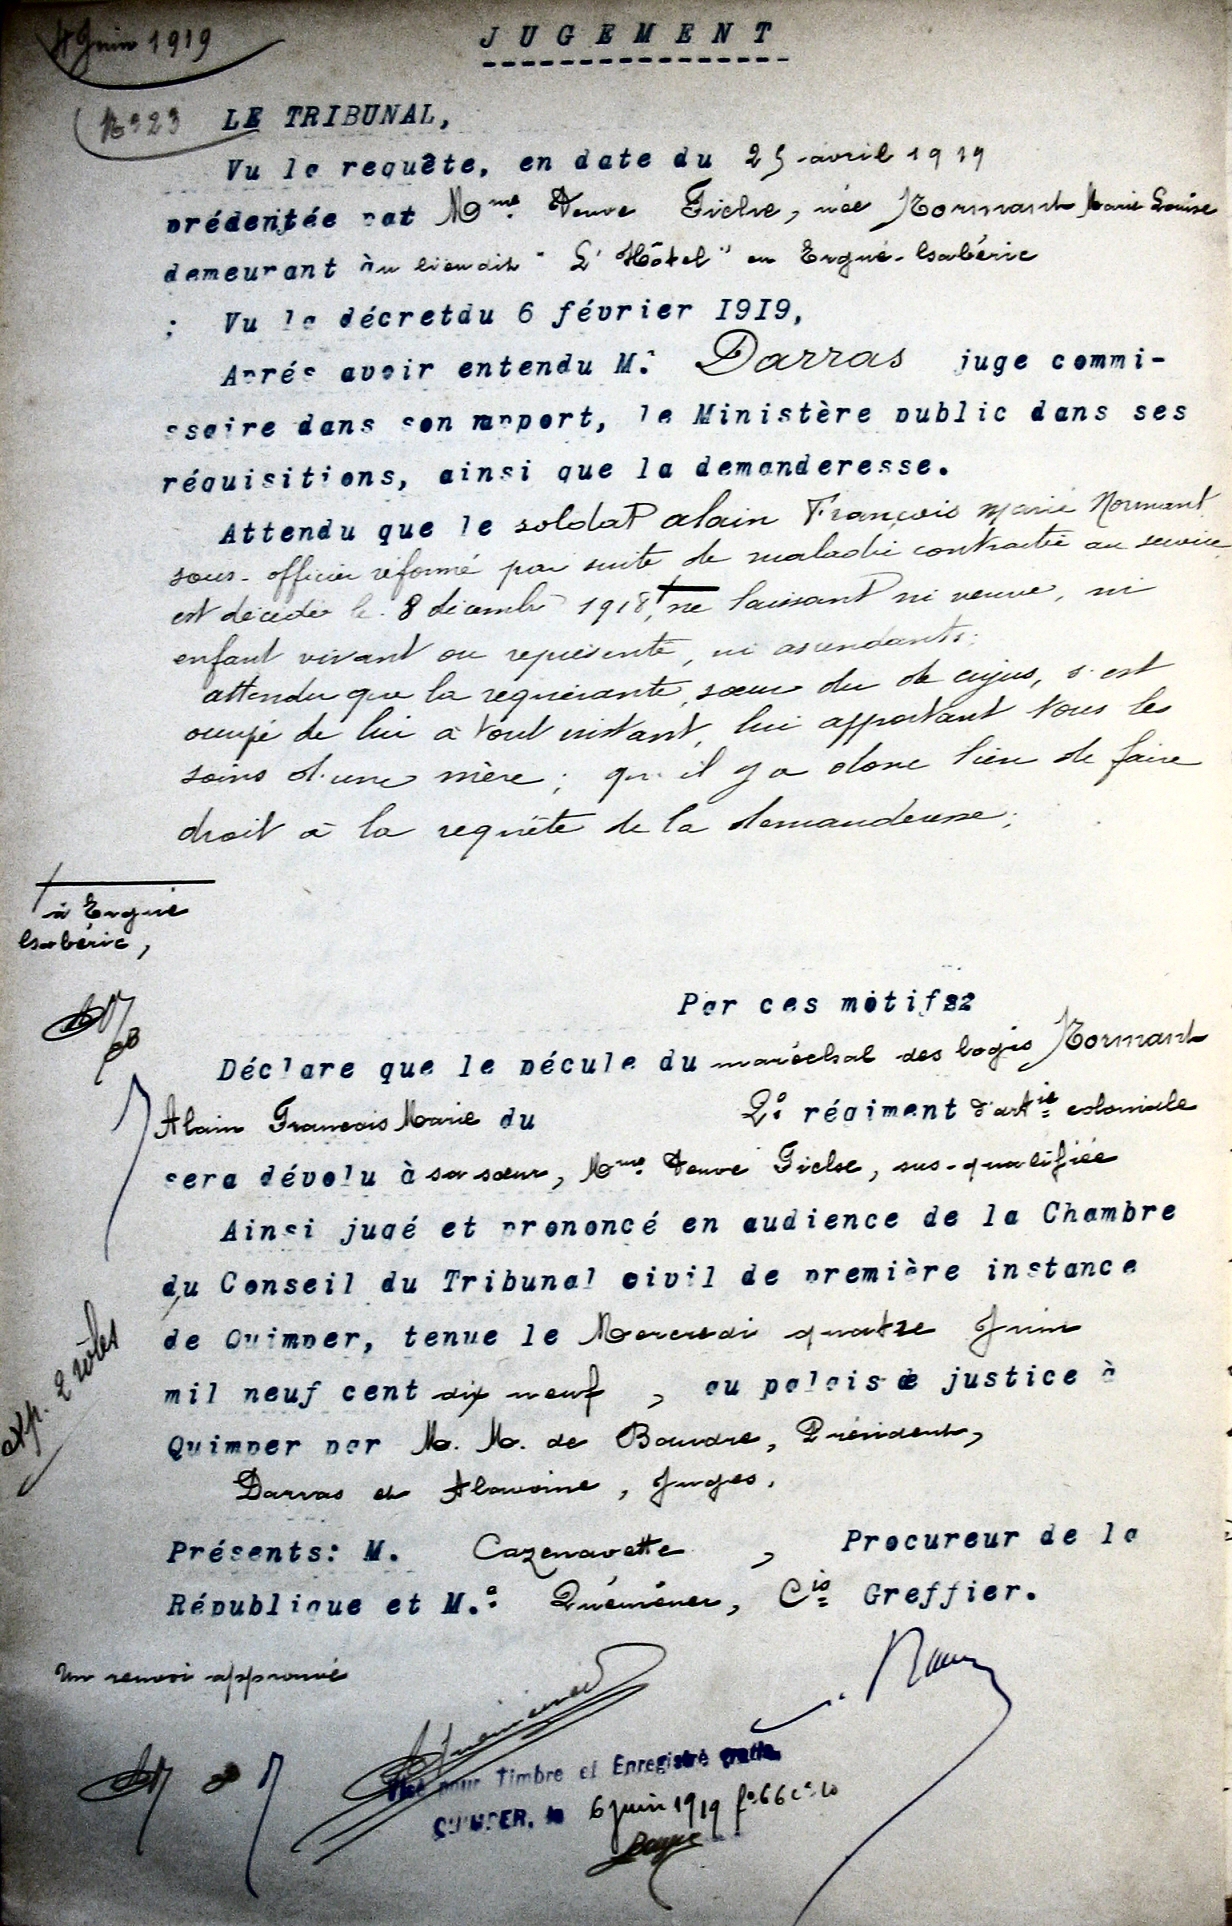 4 Juin 1919
JUGEMENT
N° 23
LE TRIBUNAL,
Vu la requête, en date du 25 avril 1919
prédentée pat Mme Veuve Fiche, née Normant Marie Louise
demeurant àu lieudit "L'Hôtel" en Ergué-Gabéric
; Vu le décretdu 6 février 1919,
Aprés avoir entendu M. Darras juge commi-
ssaire dans son rapport, le Ministère public dans ses
réquisitions, ainsi que la demanderesse.
Attendu que le soldat Alain François Marie Normant
sous-officier réformé par suite de maladie contractée au service
est décédé le 8 décembre 1918, ne laissant ni veuve, ni
enfant vivant ou représenté, ni ascendants;
attendu que la requérante, sœur du de cujus, s'est
occupé de lui à tout instant, lui apportant tous les
soins d'une mère; qu'il y a donc lieu de faire
droit à la requête de la demanderesse;
à Ergué
Gabéric,
Par ces motifs
Déclare que le pécule du maréchal des logis Normant
Alain François Marie du 2e régiment d'artie coloniale
sera dévolu à sa sœur, Mme Veuve Fiche, sus-qualifiée
Ainsi jugé et prononcé en audience de la Chambre
du Conseil du Tribunal civil de première instance
de Quimper, tenue le Mercredi quatre Juin
mil neuf cent dix neuf, au palais de justice à
exp. 2 rôles
Quimper par M. M. de Baudre, Président,
Darras et Alavoine, Juges.
Présents: M. Cazenavette, Procureur de la
République et M.e Quéméner, Cis Greffier.
Un renvoi approuvé
Visé pour Timbre et Enregistré gratis
QUIMPER, le 6 juin 1919 f° 66 c° 10